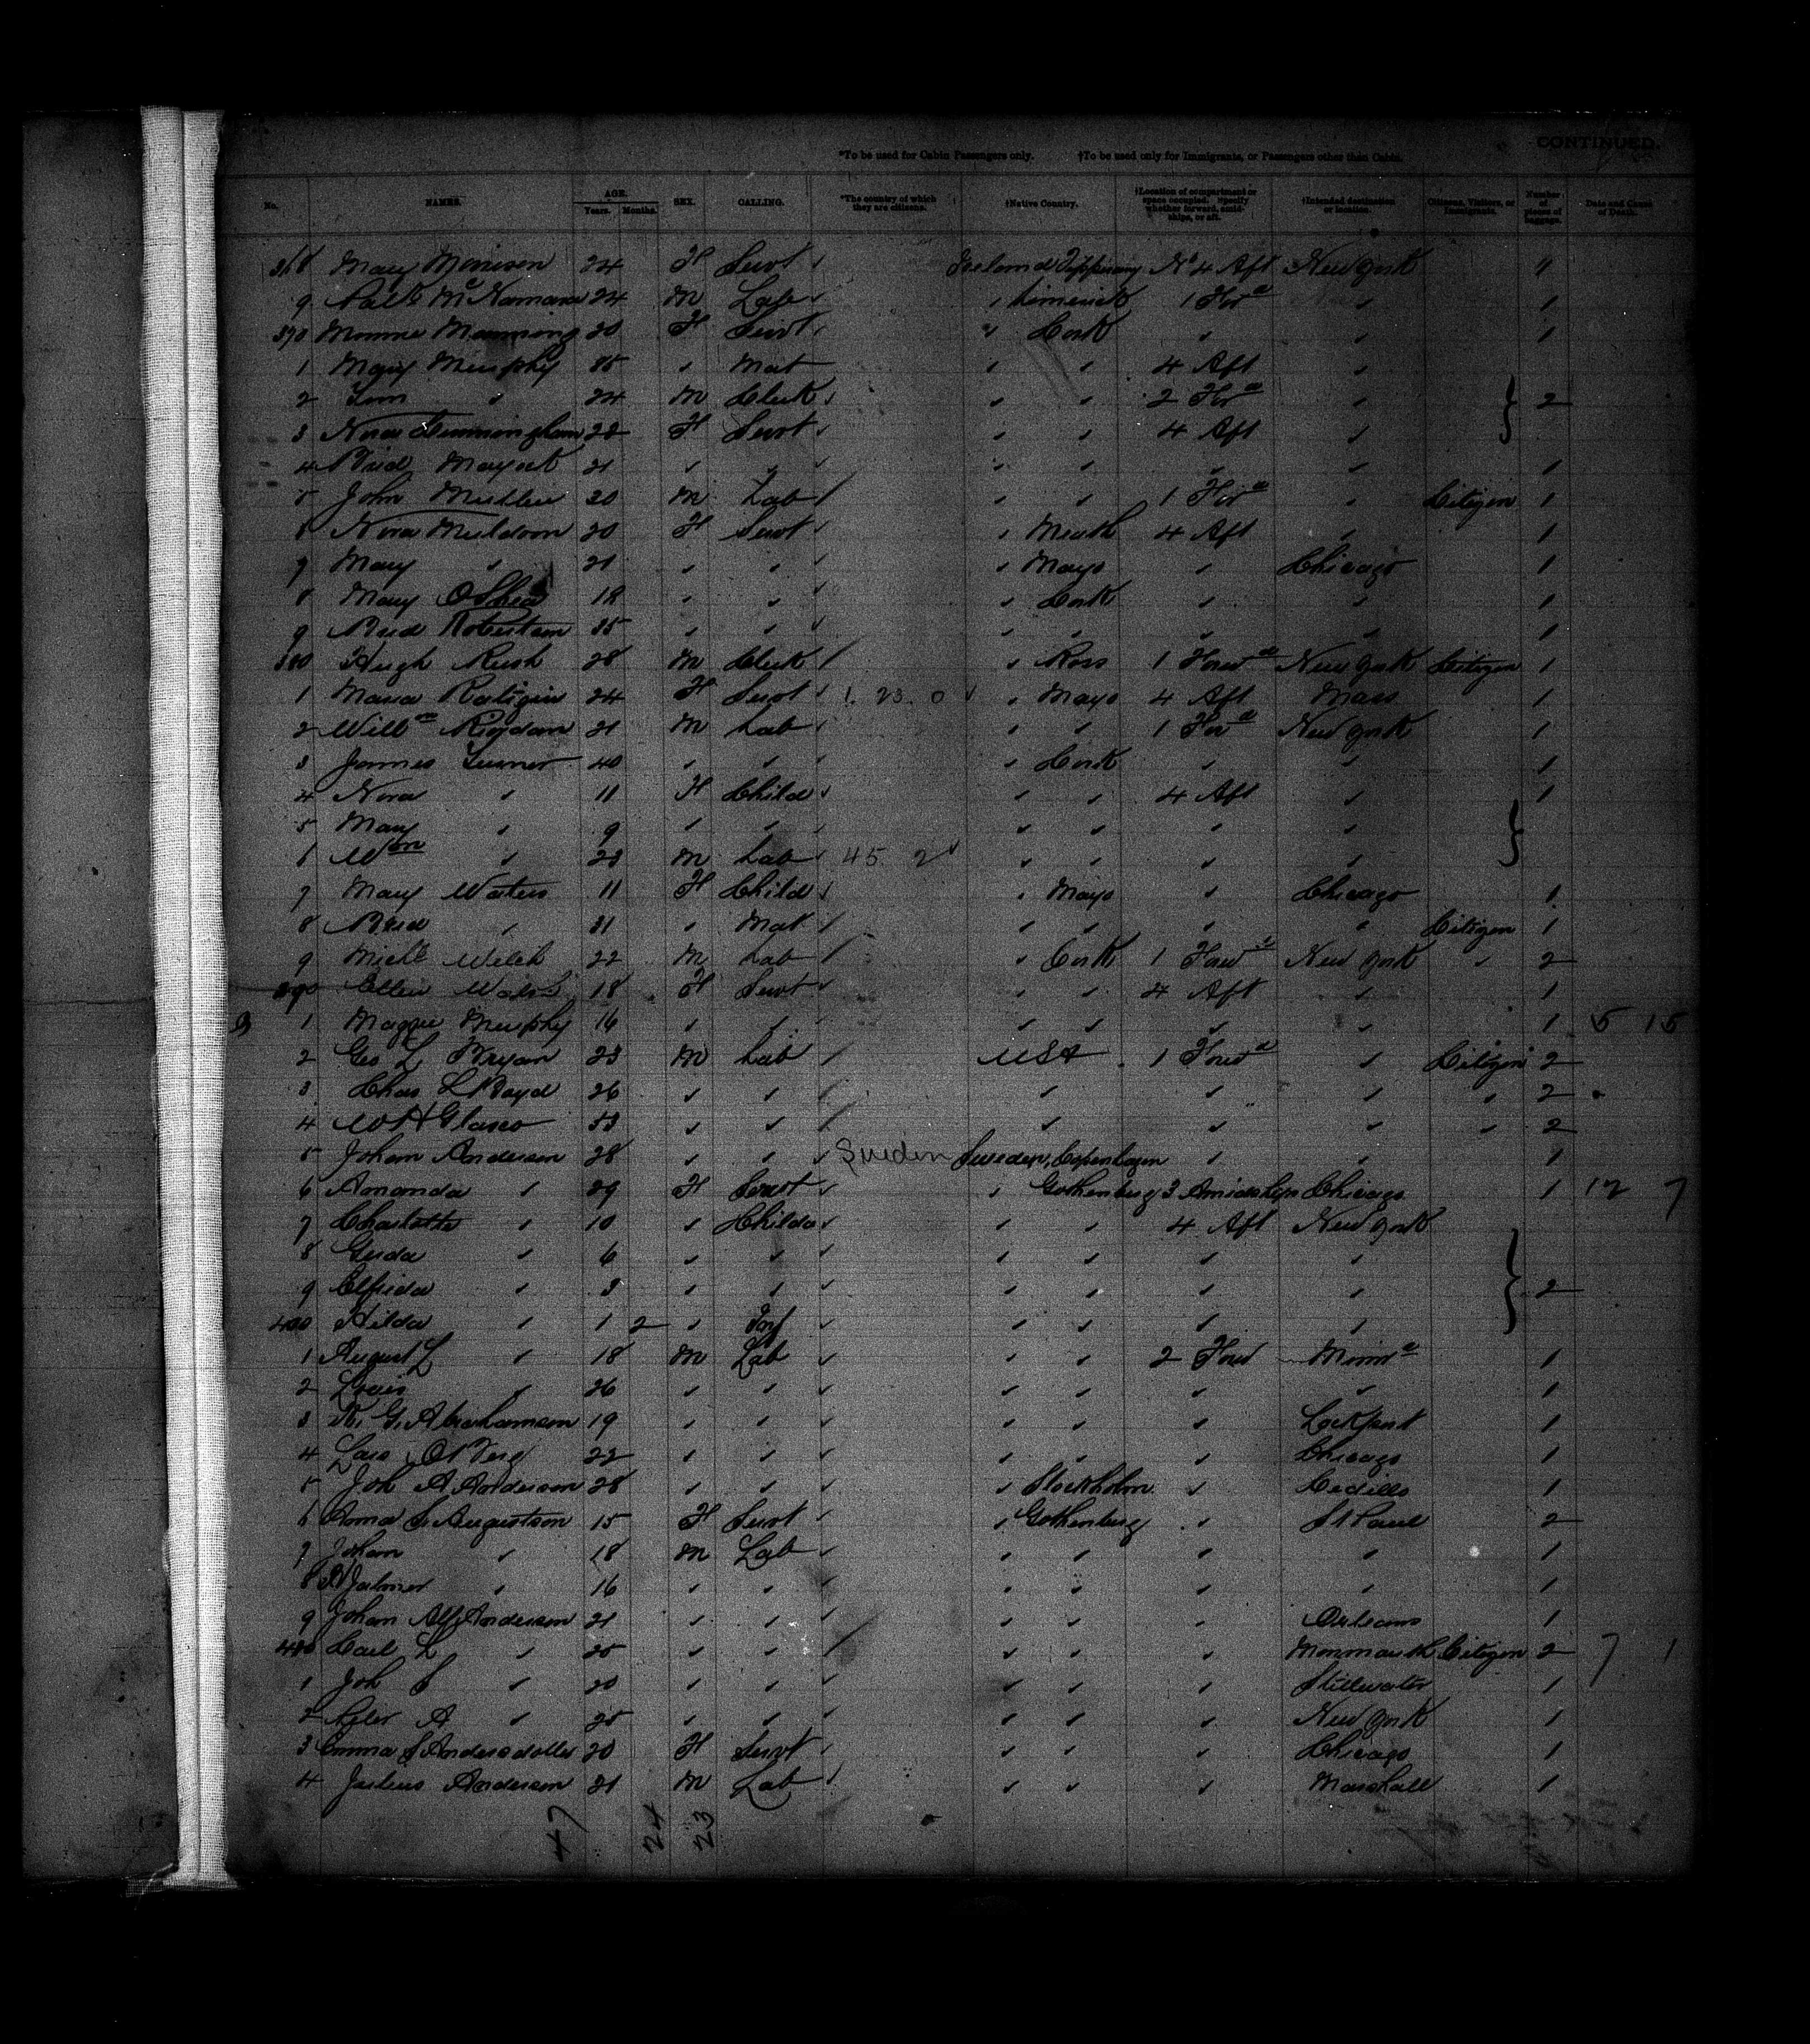 CONTINUED.
*To be used for Cabin Passengers only. †To be used only for Immigrants, or Passengers other than Cabin.
No. NAMES. AGE. Years. Months. SEX. CALLING. *The country of which they are citizens. †Native Country. †Location of compartment or space occupied. Specify whether forward, amidships, or aft. †Intended destination or location. Citizens, Visitors, or Immigrants. Number of pieces of baggage. Date and Cause of Death.
368 Mary Morrison 24 F Servt Ireland Tipperary No 4 Aft New York "
9 Patk McNamara 24 M Lab Limerick 1 For'd 1
370 Manning 20 F Servt " Cork 1
1 Mary Murphy 35 Mat 4 Aft
2 24 M Clerk 2 For'd 2
3 Nora Cunningham 22 F Servt 4 Aft
4 Brid 21 1
5 John 20 M Lab 1 For'd Citizen 1
6 Nora Muldoon 20 F Servt Meath 4 Aft 1
7 Mary 21 Mayo Chicago 1
8 Mary O'Shea 18 Cork 1
9 Brid Robertson 35 1
380 Hugh Rush 28 M Clerk Ross 1 Forw'd New York Citizen 1
1 Maria Ratigan 24 F Servt 1. 23. 0 Mayo 4 Aft Mass 1
2 Willm Riordan 21 M Lab 1 For'd New York 1
3 James Turner 40 Cork 1
4 Nora 11 F Child 4 Aft 1
5 Mary 9
6 Wm 23 M Lab 45 2
7 Mary Waters 11 F Child Mayo Chicago 1
8 Brid 31 Mat Citizen 1
9 Michl Welch 22 M Lab Cork 1 Forw'd New York 2
390 Ellen Walsh 18 F Servt 4 Aft 1
1 Maggie Murphy 16 1 5 15
2 Geo L Bryan 23 M Lab USA 1 Forw'd Citizen 2
3 Chas L Boyd 26 2
4 W H 53 2
5 Johan Anderson 28 Sweden Sweden, Copenhagen 1
6 Amanda 29 F Servt Gothenburg 3 Amidships Chicago 1 12 7
7 Charlotta 10 Child 4 Aft New York
8 Gerda 6
9 Elfrida 3 2
400 Hilda 1 2 Inf
1 August L 18 M Lab 2 Forw Minna 1
2 Louis 26 1
3 K. G. Abrahamson 19 Lockport 1
4 Lars 22 Chicago 1
5 Joh A Anderson 28 Stockholm 1
6 S. Augustson 15 F Servt Gothenburg St Paul 2
7 Johan 18 M Lab 1
8 Hjalmer 16 1
9 Johan Alf Anderson 21 Orleans 1
410 Carl L 25 Monmouth Citizen 2 7 1
1 Joh S 20 Stillwater 1
2 A 25 New York 1
3 Emma S Andersdotter 20 F Servt Chicago 1
4 Julius Anderson 21 M Lab Marshall 1
47 24 23